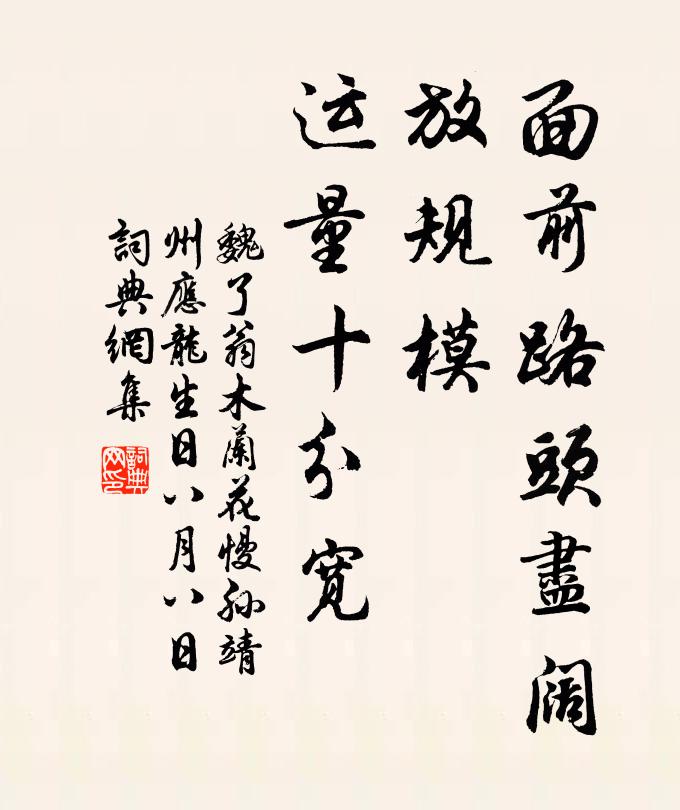 面前路頭盡阔
放規模
运量十分寬
魏了翁木蘭花慢孙靖
州應龍生日八月八日
詞典網集
詞典网印